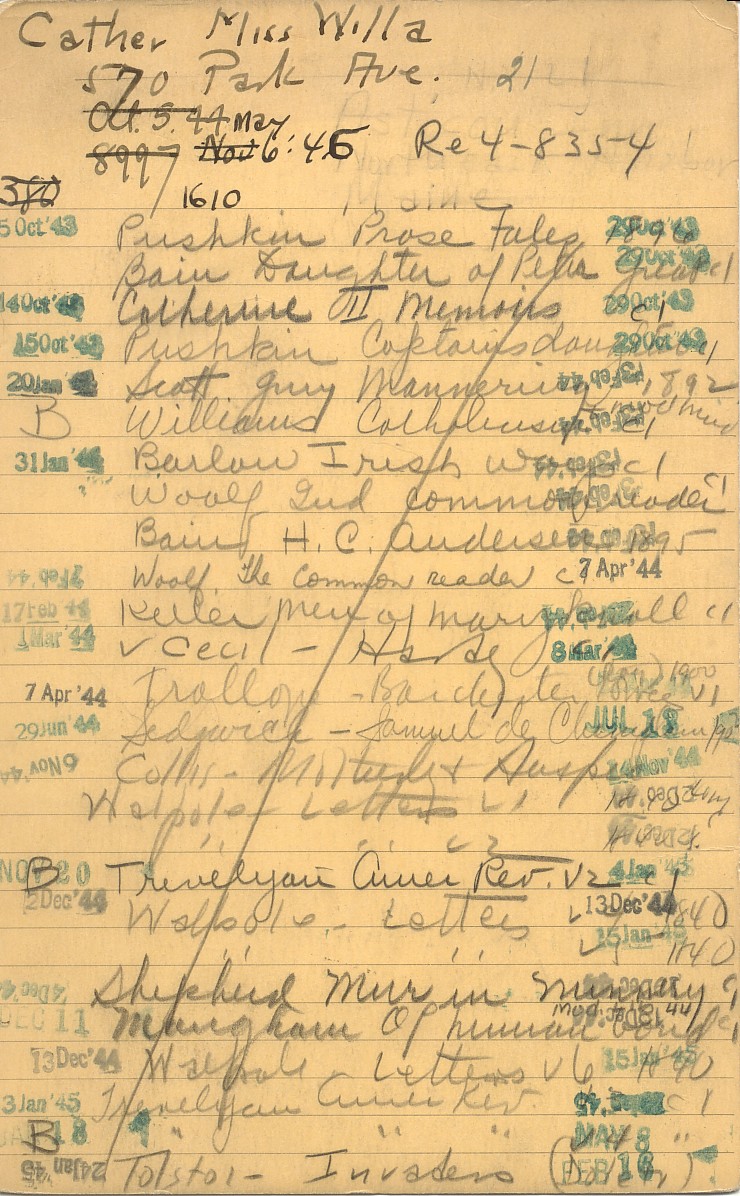 Cather Miss Willa
570 Park Ave. 211
Oct. 5. 44 May
8997 Nov 6: 45 Re 4-8354
380 1610
Maine
5 Oct '43 Pushkin Prose Tales 1896
Bain Daughter of Peter Great c1 29 Oct '43
14 Oct '43 Catherine II Memoirs c1 29 Oct '43
15 Oct '43 Pushkin Captains daughter c1 29 Oct '43
20 Jan '44 Scott Guy Mannering 1892 Feb 44
B Williams Catholicism c1
31 Jan '44 Barlow Irish ways c1
Woolf 2nd common reader c1
Bain H. C. Andersen 1895
Woolf The common reader c1 7 Apr '44
17 Feb 44 Keller Men of Maryknoll c1
1 Mar '44 v Cecil - Hardy c1 8 Mar '44
7 Apr '44 Trollope - Barchester Towers v1 1900
29 Jun '44 Sedgwick - Samuel de Champlain JUL 18
6 Nov '44 Collis - 14 Nov '44
Walpole - Letters v1
" " v2
B NOV 20 Trevelyan Amer Rev. v2 c1 4 Jan '45
2 Dec '44 Walpole - Letters 13 Dec '44 1840
15 Jan '45 1840
4 Dec '44 Shepherd Muir in
DEC 11 Maugham Of human bond c1
13 Dec '44 Walpole - Letters v6 15 Jan '45 1840
3 Jan '45 Trevelyan Amer Rev c1
B JAN 18 " " " v4 " MAY 8
24 Jan 45 Tolstoi - Invaders FEB 16